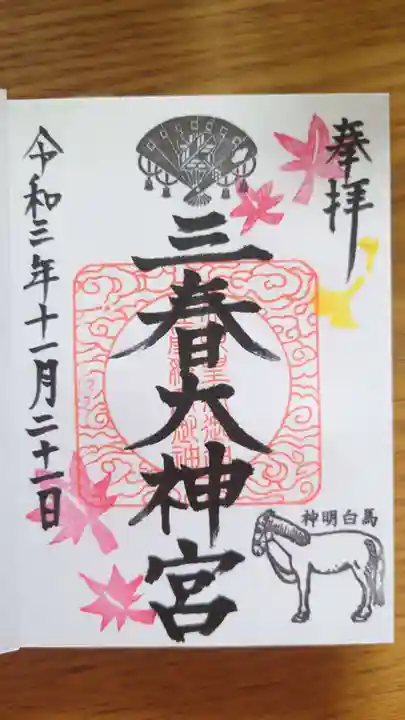 奉拝
三春大神宮
令和三年十一月二十一日
神明白馬